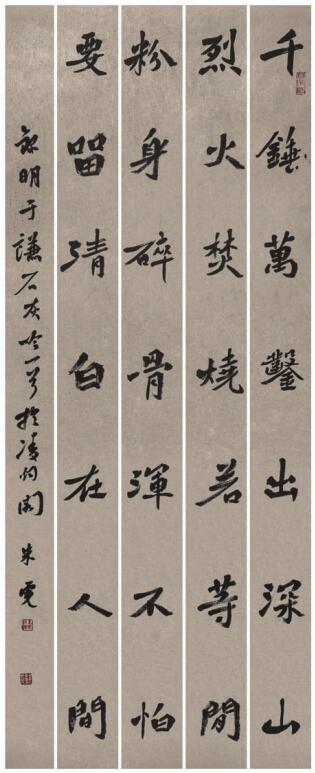 千錘萬鑿出深山
烈火焚燒若等閒
粉身碎骨渾不怕
要留清白在人間
錄明于謙石灰吟一首於凌灼閣 朱雯